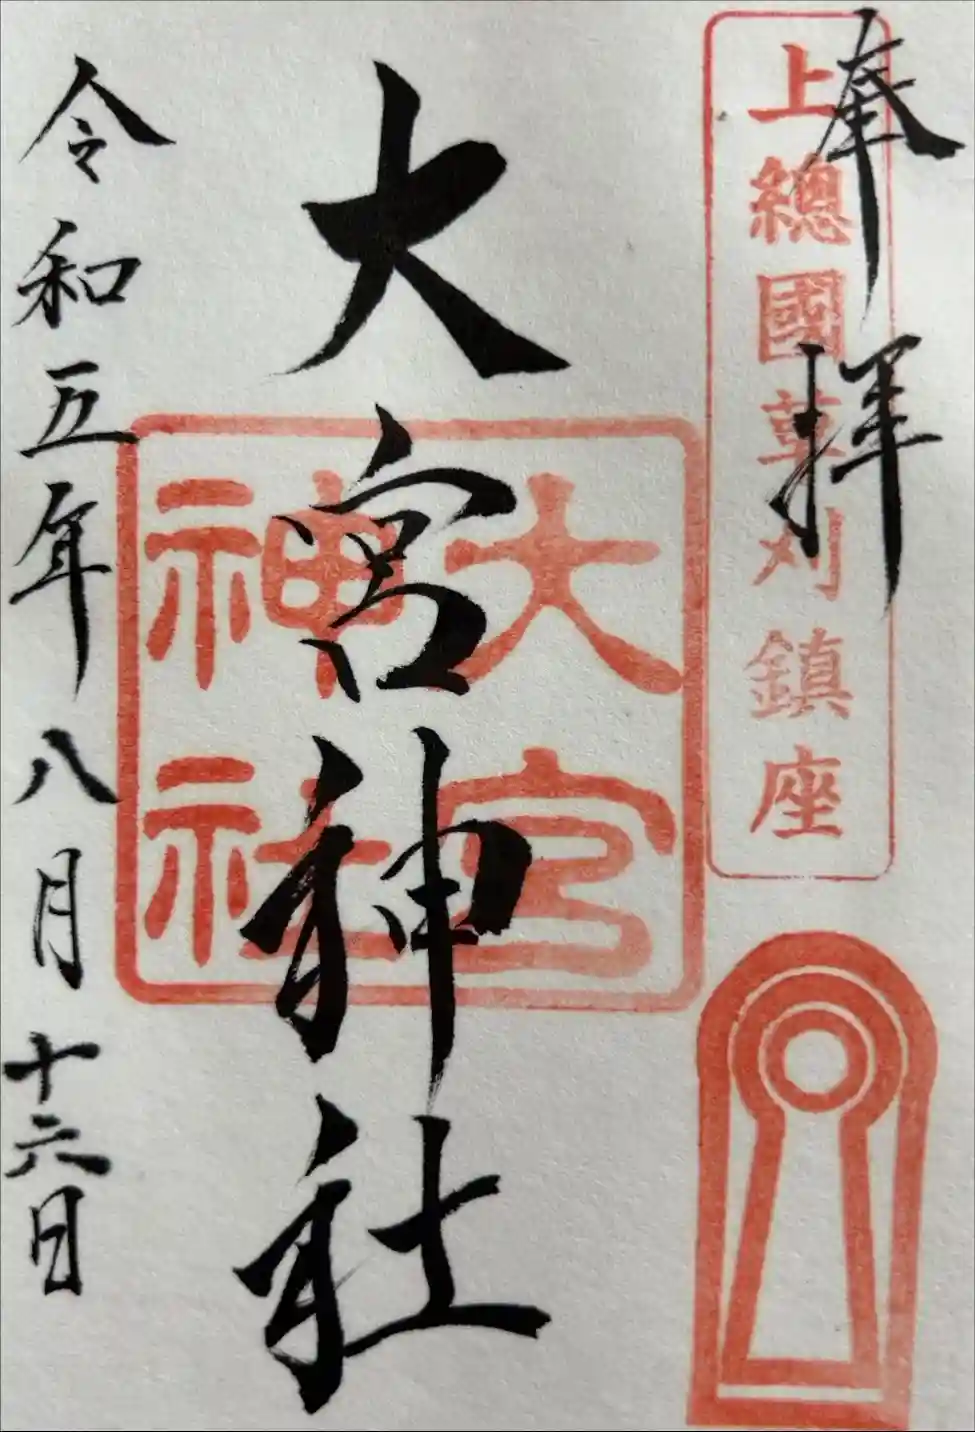 奉拝
上總國草刈鎮座
大宮神社
大宮神社
令和五年八月十六日